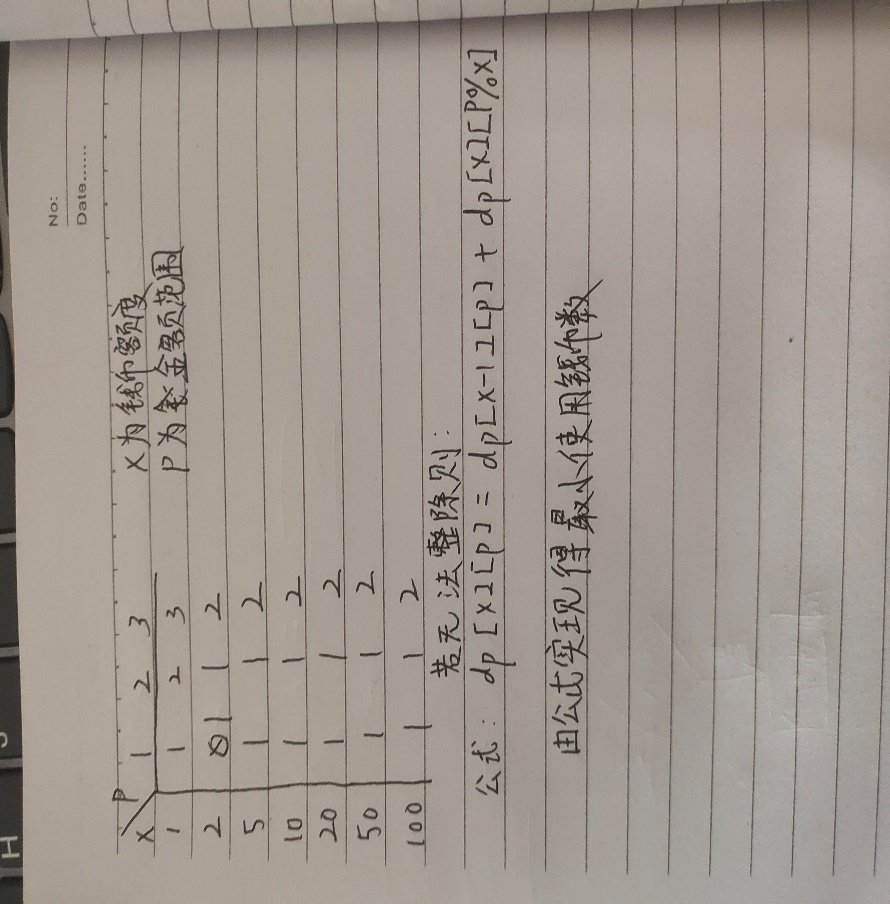 No:
Date......
X P 1 2 3
1 1 2 3
2 1 1 2
5 1 1 2
10 1 1 2
20 1 1 2
50 1 1 2
100 1 1 2
X为钱币额度
P为金额范围
若无法整除则:
公式: dp[x][p] = dp[x-1][p] + dp[x][P%x]
由公式实现得最小使用钱币数
H